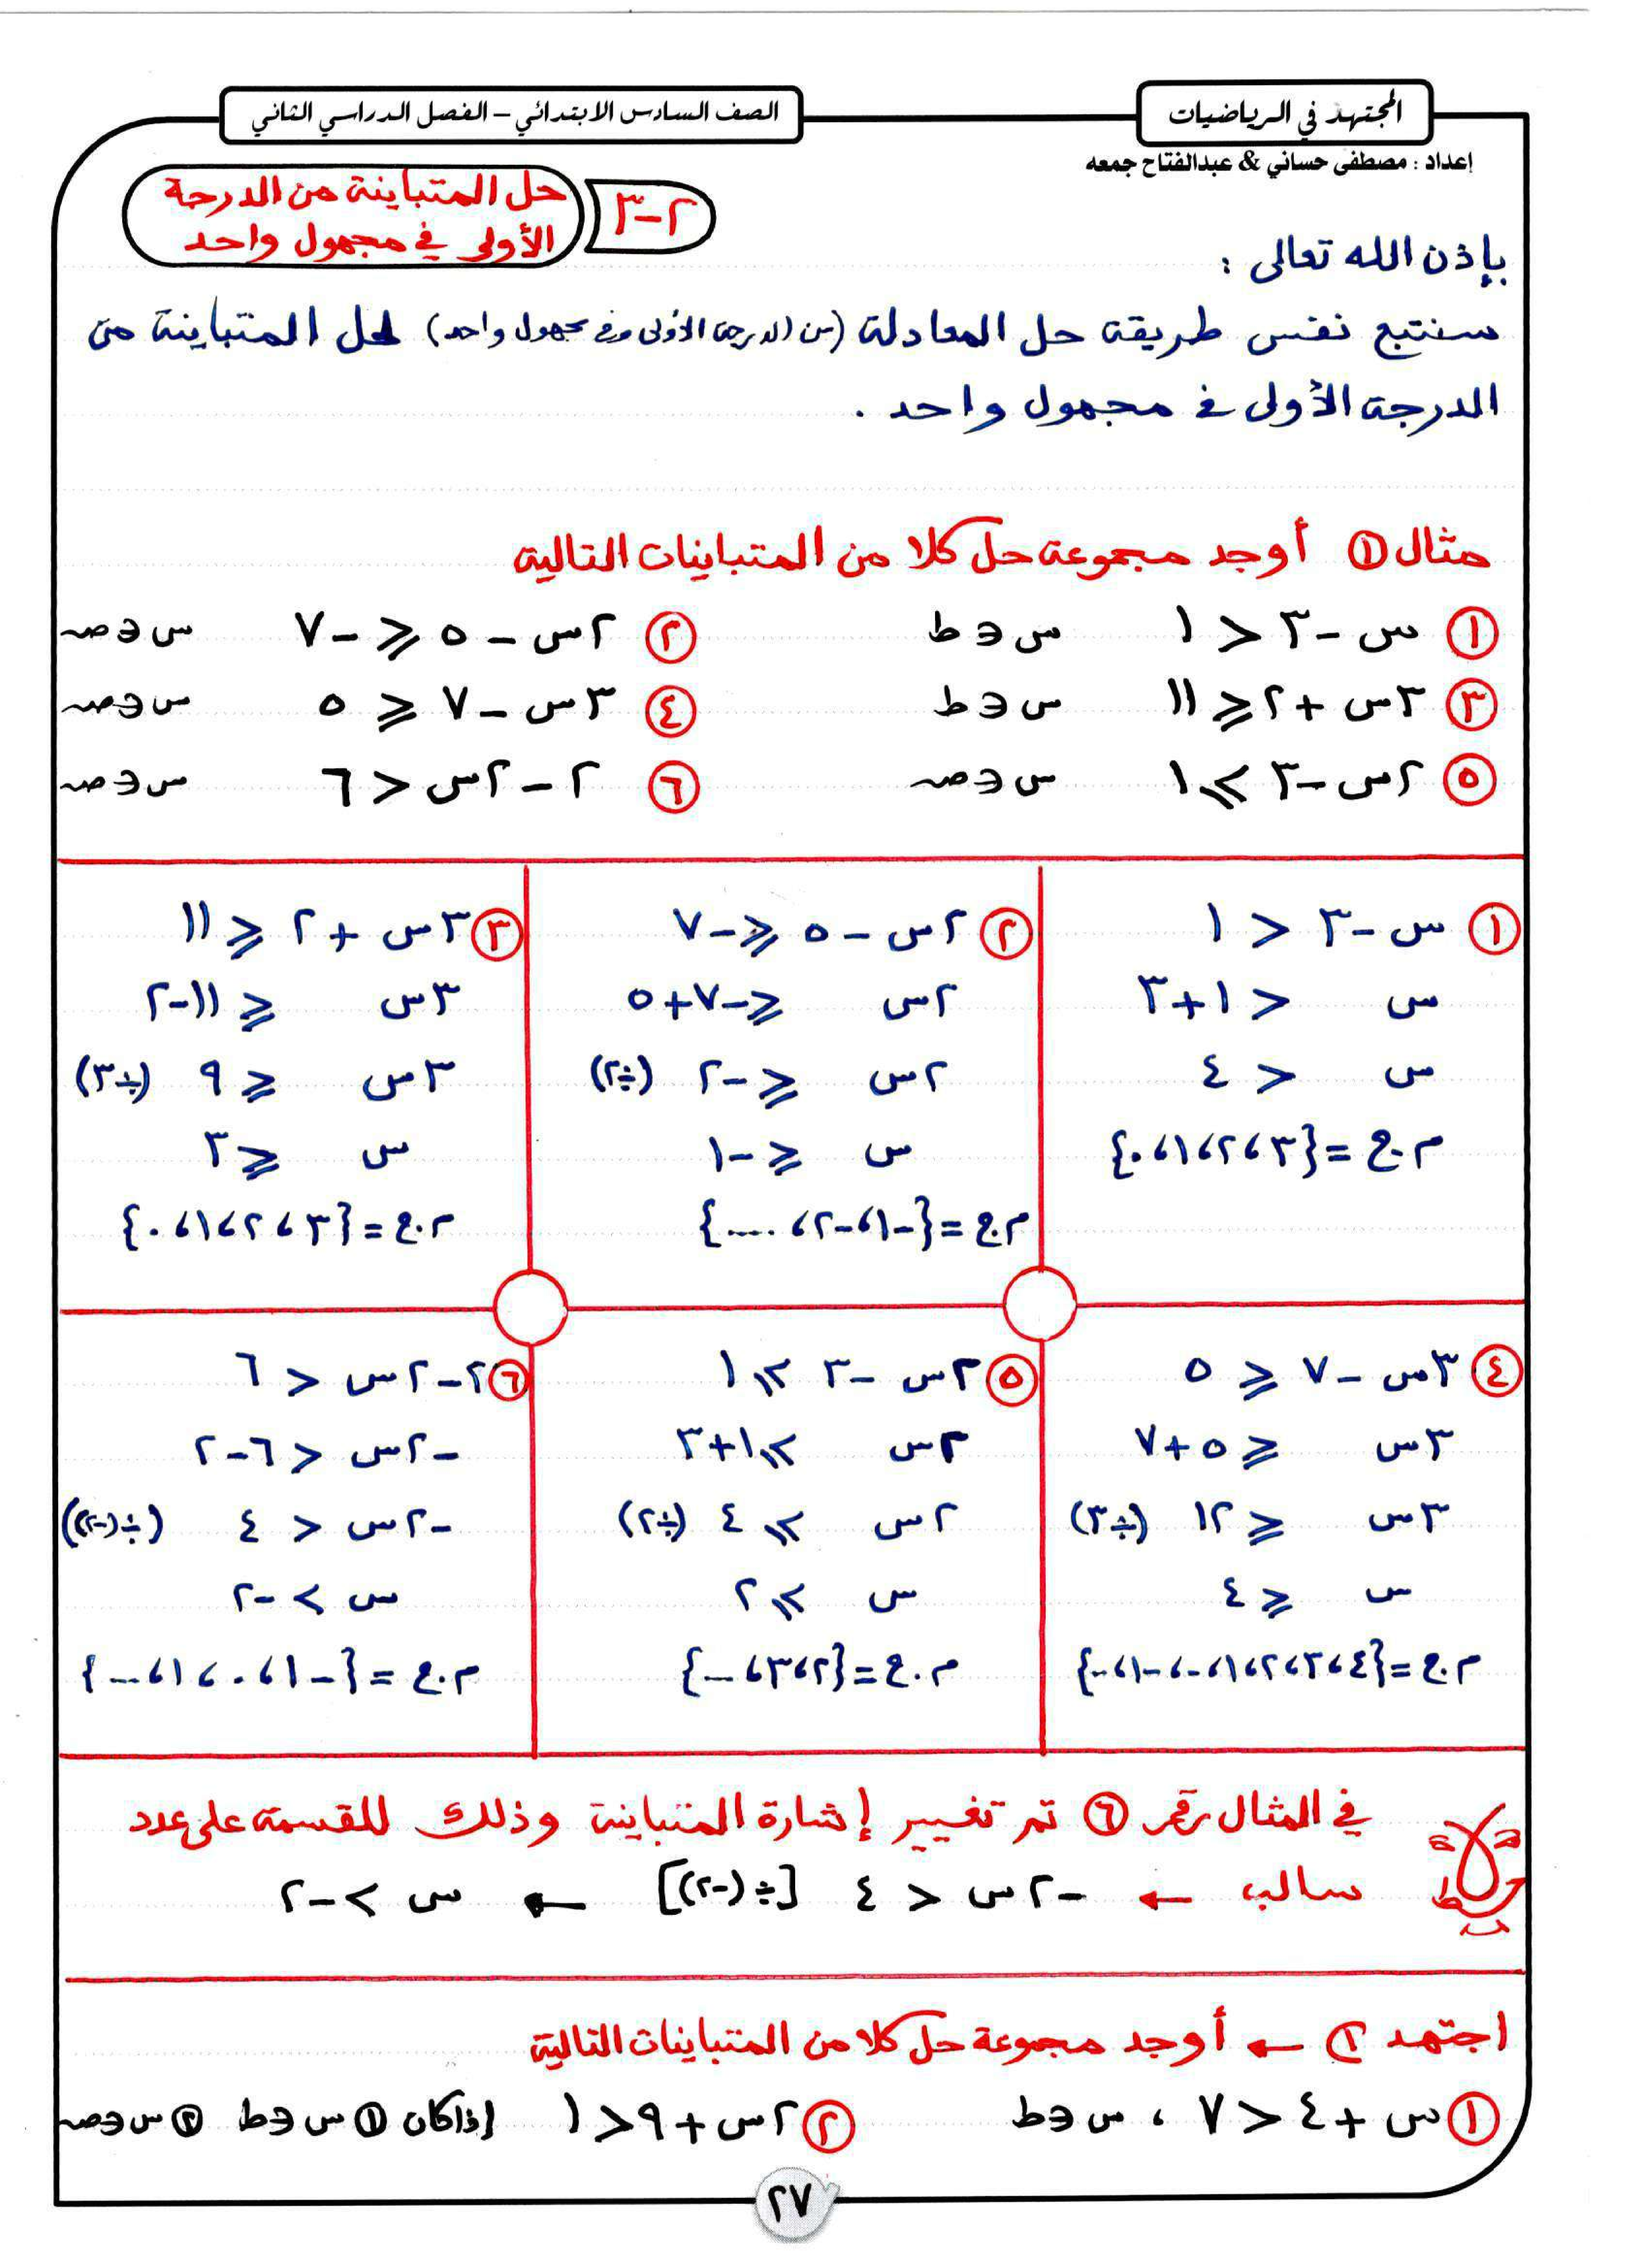 المجتهد في الرياضيات
الصف السادس الابتدائي – الفصل الدراسي الثاني
إعداد : مصطفى حساني & عبدالفتاح جمعه
٢-٣ حل المتباينة من الدرجة
الأولى في مجهول واحد
بإذن الله تعالى :
سنتبع نفس طريقة حل المعادلة (من الدرجة الأولى في مجهول واحد) لحل المتباينة من
الدرجة الأولى في مجهول واحد .
مثال ① أوجد مجموعة حل كلا من المتباينات التالية
① س - ٣ < ١ س ∈ ط ② ٢س - ٥ ≤ -٧ س ∈ صـ
③ ٣س + ٢ ≤ ١١ س ∈ ط ④ ٣س - ٧ ≤ ٥ س ∈ صـ
⑤ ٢س - ٣ ≥ ١ س ∈ صـ ⑥ ٢ - ٢س < ٦ س ∈ صـ
① س - ٣ < ١
س < ١ + ٣
س < ٤
م.ح = {٣، ٢، ١، ٠}
② ٢س - ٥ ≤ -٧
٢س ≤ -٧ + ٥
٢س ≤ -٢ (÷٢)
س ≤ -١
م.ح = {-١، -٢، ....}
③ ٣س + ٢ ≤ ١١
٣س ≤ ١١ - ٢
٣س ≤ ٩ (÷٣)
س ≤ ٣
م.ح = {٣، ٢، ١، ٠}
④ ٣س - ٧ ≤ ٥
٣س ≤ ٥ + ٧
٣س ≤ ١٢ (÷٣)
س ≤ ٤
م.ح = {٤، ٣، ٢، ١، ٠، -١، ..}
⑤ ٢س - ٣ ≥ ١
٢س ≥ ١ + ٣
٢س ≥ ٤ (÷٢)
س ≥ ٢
م.ح = {٢، ٣، ...}
⑥ ٢ - ٢س < ٦
-٢س < ٦ - ٢
-٢س < ٤ (÷(-٢))
س > -٢
م.ح = {-١، ٠، ١، ...}
في المثال رقم ⑥ تم تغيير إشارة المتباينة وذلك للقسمة على عدد
سالب ← -٢س < ٤ [÷(-٢)] ← س > -٢
اجتهد ① ← أوجد مجموعة حل كلا من المتباينات التالية
① س + ٤ < ٧ ، س ∈ ط ② ٢س + ٩ < ١ إذا كان ① س ∈ ط ② س ∈ صـ
٢٧